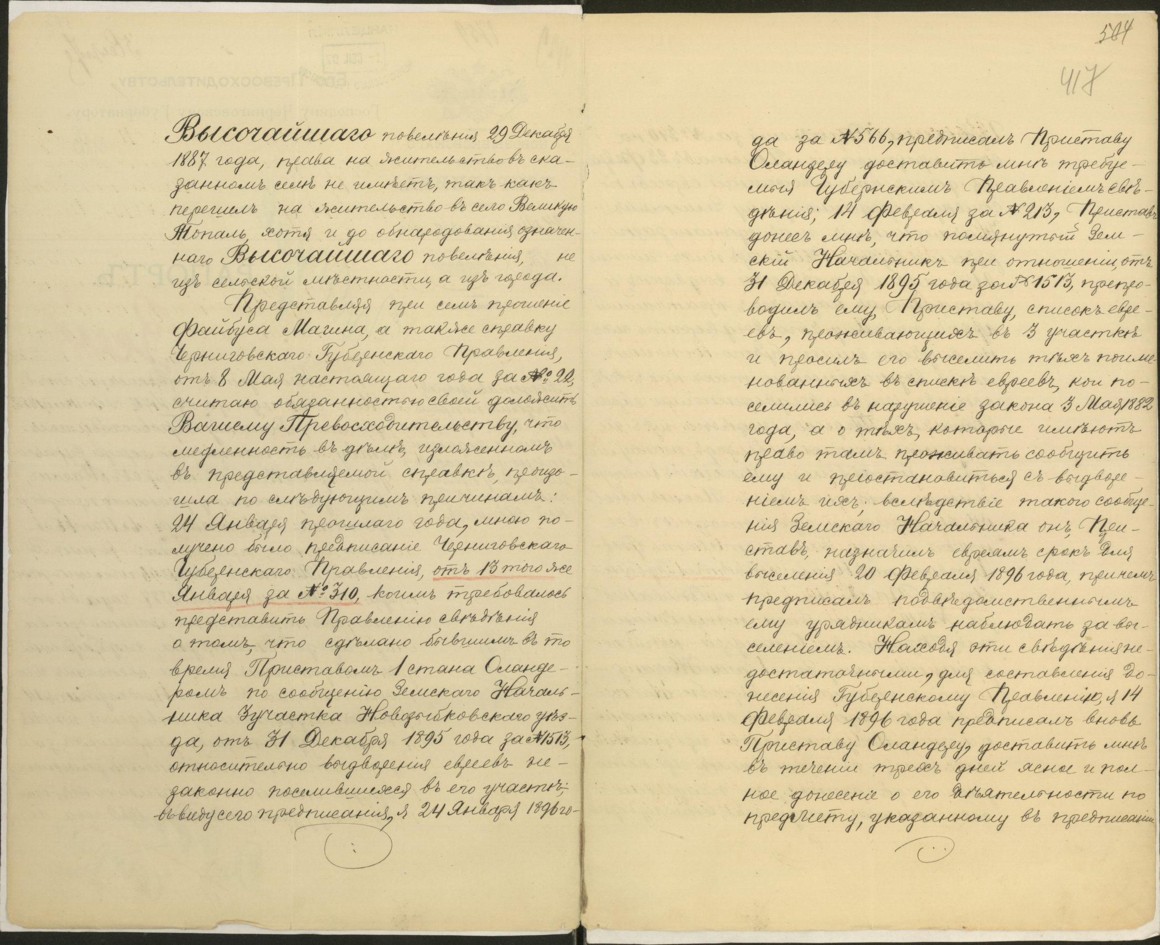 Высочайшаго повелѣнія 29 Декабря
1887 года, права на жительство въ ска-
занномъ селѣ не имѣетъ, такъ какъ
перешелъ на жительство въ село Великую
Топаль, хотя и до обнародованія означен-
наго Высочайшаго повелѣнія, не
изъ сельской мѣстности, а изъ города.
Представляя при семъ прошеніе
Файбуса Магина, а также справку
Черниговскаго Губернскаго Правленія,
отъ 8 Мая настоящаго года за № 22,
считаю обязанностью своей доложить
Вашему Превосходительству, что
медленность въ дѣлѣ, изложенномъ
въ представляемой справкѣ, произо-
шла по слѣдующимъ причинамъ:
24 Января прошлаго года, мною по-
лучено было предписаніе Черниговскаго
Губернскаго Правленія, отъ 13 того же
Января за № 310, коимъ требовалось
представить Правленію свѣдѣнія
о томъ, что сдѣлано бывшимъ въ то
время Приставомъ 1 стана Оланде-
ромъ по сообщенію Земскаго Началь-
ника 3 участка Новозыбковскаго уѣз-
да, отъ 31 Декабря 1895 года за № 1513,
относительно выдворенія евреевъ не-
законно поселившихся въ его участкѣ;
въ виду сего предписанія, я 24 Января 1896 го-
504
417
да за № 566, предписалъ Приставу
Оландеру доставить мнѣ требуе-
мыя Губернскимъ Правленіемъ свѣ-
дѣнія; 14 Февраля за № 213, Приставъ
донесъ мнѣ, что помянутый Зем-
скій Начальникъ при отношеніи, отъ
31 Декабря 1895 года за № 1513, препро-
водилъ ему, Приставу, списокъ евре-
евъ, проживающихъ въ 3 участкѣ
и просилъ его выселить тѣхъ поиме
нованныхъ въ спискѣ евреевъ, кои по-
селились въ нарушеніе закона 3 Мая 1882
года, а о тѣхъ, которые имѣютъ
право тамъ проживать сообщить
ему и пріостановиться съ выдворе-
ніемъ ихъ; вслѣдствіе такого сообще-
нія Земскаго Начальника онъ, При-
ставъ, назначилъ евреямъ срокъ для
выселенія 20 Февраля 1896 года, причемъ
предписалъ подвѣдомственнымъ
ему урядникамъ наблюдать за вы-
селеніемъ. Находя эти свѣдѣнія не-
достаточными, для составленія до-
несенія Губернскому Правленію, я 14
Февраля 1896 года предписалъ вновь
Приставу Оландеру, доставить мнѣ
въ теченіи трехъ дней ясное и пол-
ное донесеніе о его дѣятельности по
предмету, указанному въ предписаніи